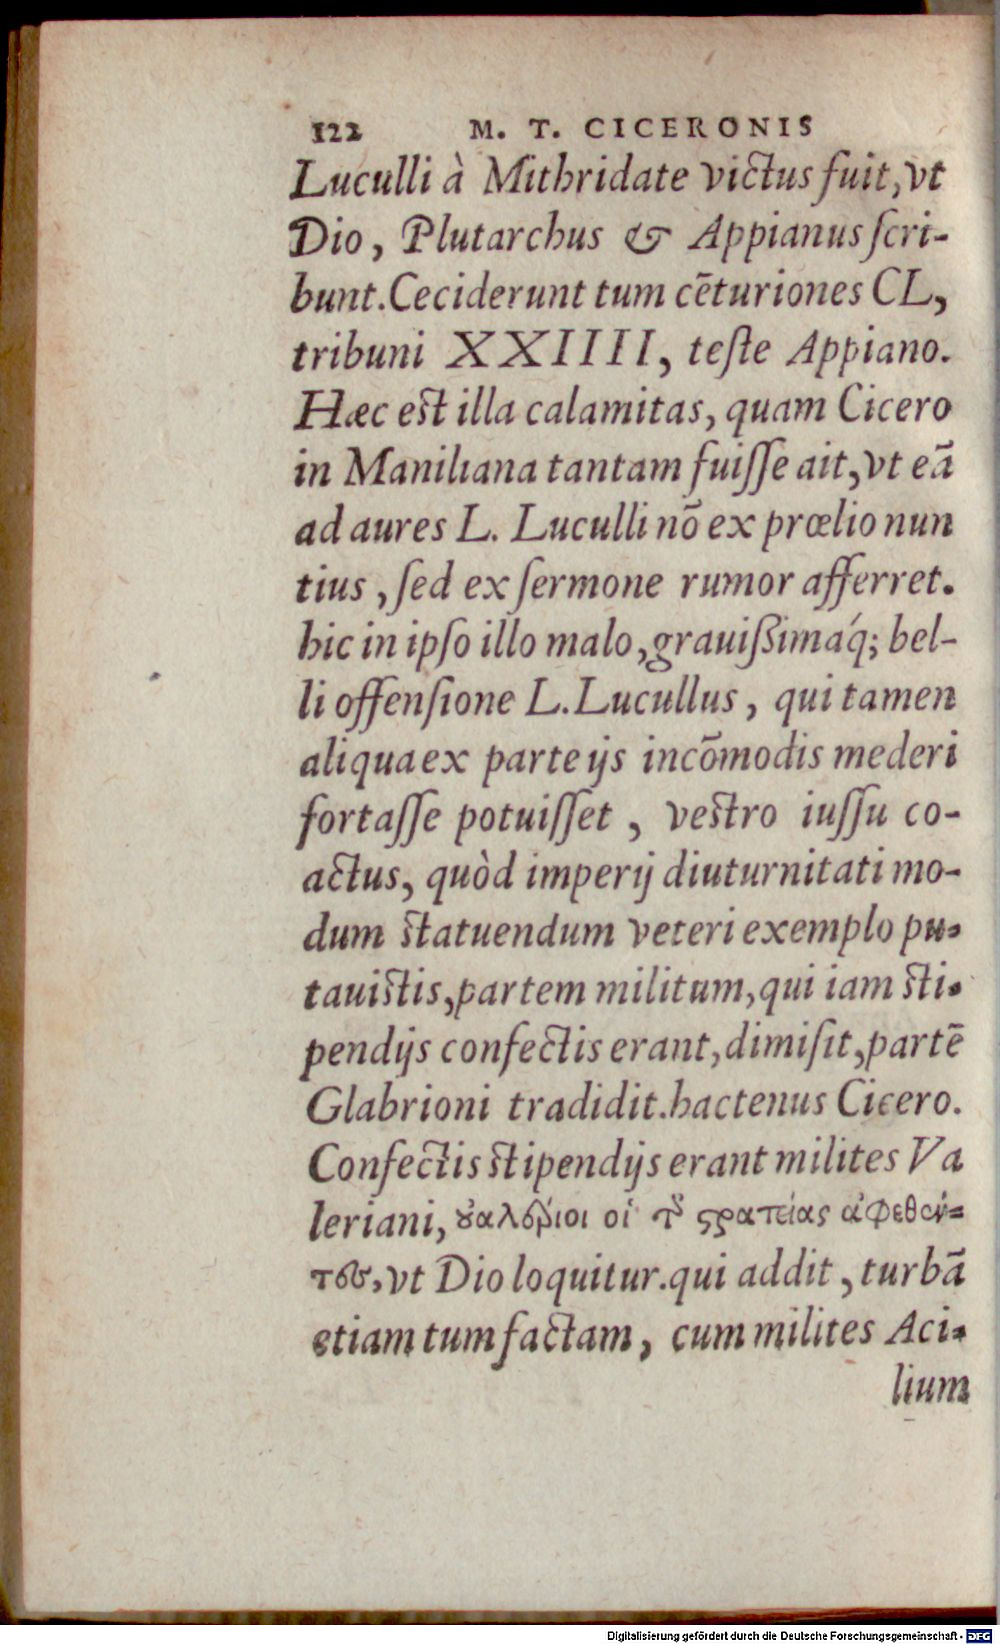 122 M. T. CICERONIS
Luculli à Mithridate victus fuit, vt
Dio, Plutarchus & Appianus ſcri-
bunt. Ceciderunt tum cēturiones CL,
tribuni XXIIII, teſte Appiano.
Hæc est illa calamitas, quam Cicero
in Maniliana tantam fuiſſe ait, vt eā
ad aures L. Luculli nō ex prœlio nun
tius, ſed ex ſermone rumor afferret.
hic in ipſo illo malo, grauißimaq́; bel-
li offenſione L. Lucullus, qui tamen
aliqua ex parte ijs incōmodis mederi
fortaſſe potuiſſet, vestro iuſſu co-
actus, quòd imperij diuturnitati mo-
dum statuendum veteri exemplo pu-
tauistis, partem militum, qui iam sti-
pendijs confectis erant, dimiſit, partē
Glabrioni tradidit. hactenus Cicero.
Confectis stipendijs erant milites Va
leriani, ȣαλέριοι οἱ τ͂ ϛρατείας ἀφεθέν-
τες, vt Dio loquitur. qui addit, turbā
etiam tum factam, cum milites Aci-
lium
Digitalisierung gefördert durch die Deutsche Forschungsgemeinschaft - DFG